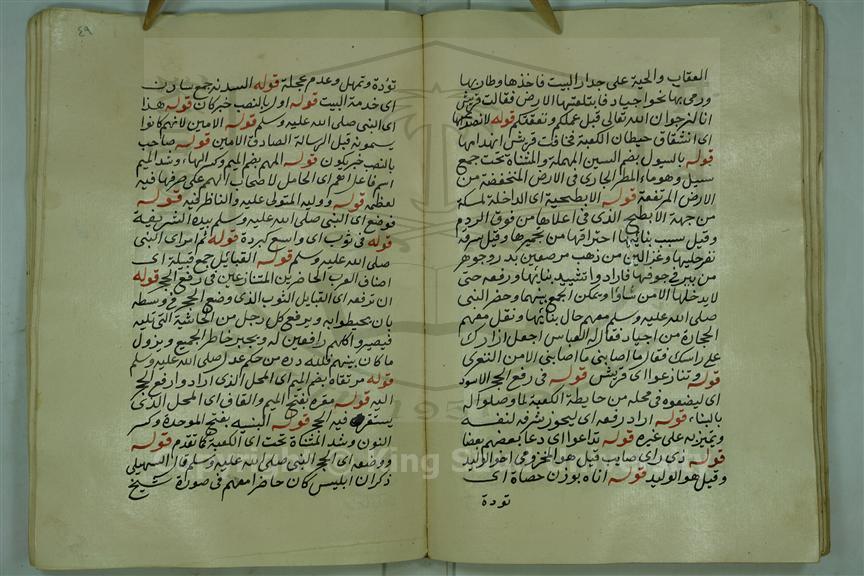 العقاب والحية على جدار البيت فاخذها وطار بها
ورمى بها نحو اجياد فابتلعتها الارض فقالت قريش
انا لنرجو ان الله تعالى قبل عملكم ونفقتكم قوله لانصداعها
اى انشقاق حيطان الكعبة فخافت قريش انهدامها
قوله بالسيول بضم السين المهملة والمثناة تحت جمع
سيل وهو ماء المطر الجارى فى الارض المنخفضة من
الارض المرتفعة قوله الابطحية اى الداخلة لمكة
من جهة الابطح الذى فى اعلاها من فوق الردم
وقيل سبب بنائها احتراقها من تجميرها وقيل سرقة
نفر حليها وغزالين من ذهب مرصعين بدر وجوهر
من بير فى جوفها فارادوا تشييد بنائها ورفعه حتى
لا يدخلها الا من شاؤا ويمكن الجمع بينهما وحضر النبى
صلى الله عليه وسلم معهم حال بنائها ونقل معهم
الحجارة من اجياد فقال له العباس اجعل ازارك
على راسك فقال ما اصابنى ما اصابنى الا من التعرى
قوله وتنازعوا اى قريش قوله فى رفع الحجر الاسود
اى ليضعوه فى محله من حايطة الكعبة لما وصلوا اليه
بالبناء قوله اراد رفعه اى يحوز شرفه لنفسه
ويتميز به على غيره قوله تداعوا اى دعا بعضهم بعضا
قوله ذى راى صايب قيل هو المخزومى اخو الوليد
وقيل هو الوليد قوله اناه بوزن حصاة اى
تودة
٤٩
تؤدة وتمهل وعدم عجلة قوله السدنة جمع سادن
اى خدمة البيت قوله اول بالنصب خبر كان قوله هذا
اى النبى صلى الله عليه وسلم قوله الامين لانهم كانوا
يسمونه قبل الرسالة الصادق الامين قوله صاحب
بالنصب خبر يكون قوله المهم بضم الميم وكسر الهاء وشد الميم
اسم فاعل اهم اى الحامل لاصحاب الهم على صرفها فيه
لعظمه قوله ووليه المتولى عليه والناظر لنه قوله
فوضع اى النبى صلى الله عليه وسلم بيده الشريفة
قوله فى ثوب اى واسع كبردة قوله ثم امر اى النبى
صلى الله عليه وسلم قوله القبائل جمع قبيلة اى
اصناف العرب الحاضرين المتنازعين فى رفع الحجر قوله
ان ترفعه اى القبايل الثوب الذى وضع الحجر فى وسطه
بان يحيطوا به ويرفع كل رجل من الحاشية التى تليه
فيصيروا كلهم رافعين له ويجبر خاطر الجميع ويزول
ما كان بينهم فلله دره من حكم عدل صلى الله عليه وسلم
قوله مرتقاه بضم الميم اى المحل الذى ارادوا رفع الحجر
اليه قوله مقره بفتح الميم والقاف اى المحل الذى
يستقر فيه الحجر قوله البنية بفتح الموحدة وكسر
النون وشد المثناة تحت اى الكعبة كما تقدم قوله
ووضعه اى الحجر النبى صلى الله عليه وسلم قال السهيلى
ذكر ان ابليس كان حاضرا معهم فى صورة شيخ